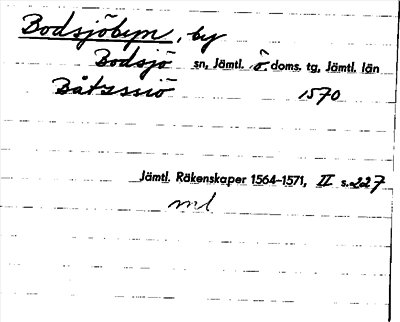 Bodsjöbyn, by
Bodsjö sn, Jämtl. ö doms. tg, Jämtl. län
Båtzssiö 1570
Jämtl. Räkenskaper 1564-1571, II s. 227
ml